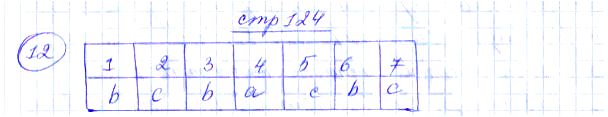 стр 124
12
1 2 3 4 5 6 7
b c b a c b c